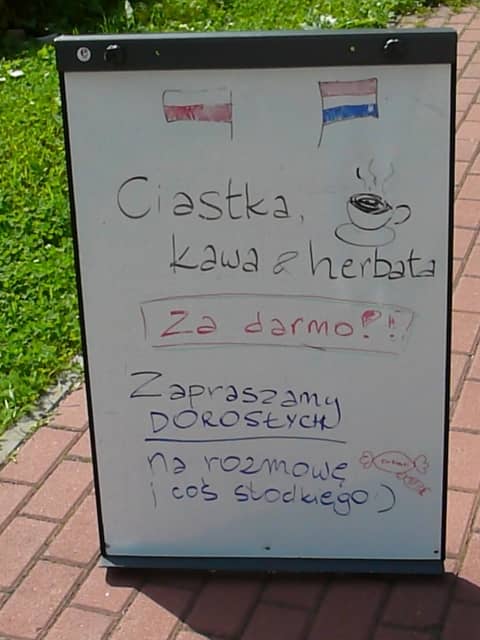 Ciastka,
kawa & herbata
Za darmo!!!
Zapraszamy
DOROSŁYCH
na rozmowę
i coś słodkiego :)